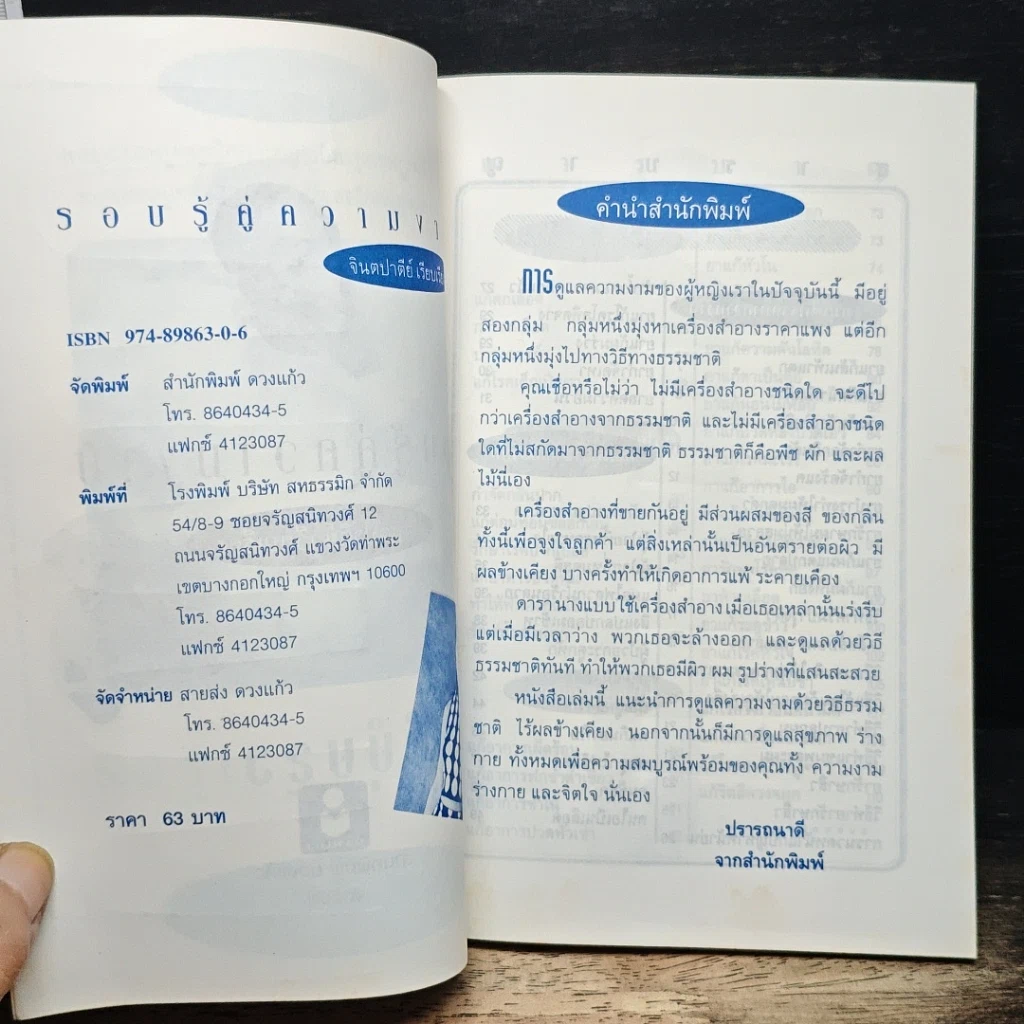 รอบรู้คู่ความงา
จินตปาตีย์ เรียบเรี
ISBN 974-89863-0-6
จัดพิมพ์ สำนักพิมพ์ ดวงแก้ว
โทร. 8640434-5
แฟกซ์ 4123087
พิมพ์ที่ โรงพิมพ์ บริษัท สหธรรมิก จำกัด
54/8-9 ซอยจรัญสนิทวงศ์ 12
ถนนจรัญสนิทวงศ์ แขวงวัดท่าพระ
เขตบางกอกใหญ่ กรุงเทพฯ 10600
โทร. 8640434-5
แฟกซ์ 4123087
จัดจำหน่าย สายส่ง ดวงแก้ว
โทร. 8640434-5
แฟกซ์ 4123087
ราคา 63 บาท
คำนำสำนักพิมพ์
การดูแลความงามของผู้หญิงเราในปัจจุบันนี้ มีอยู่
สองกลุ่ม กลุ่มหนึ่งมุ่งหาเครื่องสำอางราคาแพง แต่อีก
กลุ่มหนึ่งมุ่งไปทางวิธีทางธรรมชาติ
คุณเชื่อหรือไม่ว่า ไม่มีเครื่องสำอางชนิดใด จะดีไป
กว่าเครื่องสำอางจากธรรมชาติ และไม่มีเครื่องสำอางชนิด
ใดที่ไม่สกัดมาจากธรรมชาติ ธรรมชาติก็คือพืช ผัก และผล
ไม้นี่เอง
เครื่องสำอางที่ขายกันอยู่ มีส่วนผสมของสี ของกลิ่น
ทั้งนี้เพื่อจูงใจลูกค้า แต่สิ่งเหล่านั้นเป็นอันตรายต่อผิว มี
ผลข้างเคียง บางครั้งทำให้เกิดอาการแพ้ ระคายเคือง
ดารา นางแบบ ใช้เครื่องสำอาง เมื่อเธอเหล่านั้นเร่งรีบ
แต่เมื่อมีเวลาว่าง พวกเธอจะล้างออก และดูแลด้วยวิธี
ธรรมชาติทันที ทำให้พวกเธอมีผิว ผม รูปร่างที่แสนสะสวย
หนังสือเล่มนี้ แนะนำการดูแลความงามด้วยวิธีธรรม
ชาติ ไร้ผลข้างเคียง นอกจากนั้นก็มีการดูแลสุขภาพ ร่าง
กาย ทั้งหมดเพื่อความสมบูรณ์พร้อมของคุณทั้ง ความงาม
ร่างกาย และจิตใจ นั่นเอง
ปรารถนาดี
จากสำนักพิมพ์